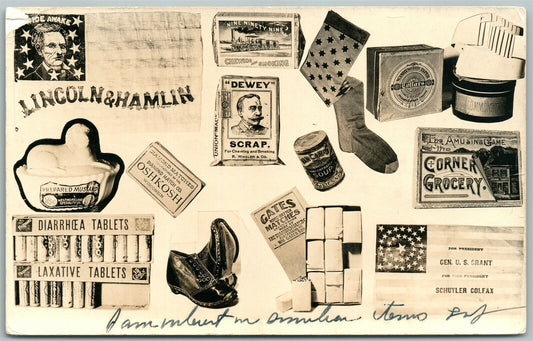 WIDE AWAKE
LINCOLN & HAMLIN
NINE NINETY NINE
CHEWING AND SMOKING
"DEWEY"
SCRAP.
For Chewing and Smoking
UNION MADE
SOUP
THE AMUSING GAME
CORNER
GROCERY.
PREPARED MUSTARD
OSHKOSH
DIARRHŒA TABLETS
LAXATIVE TABLETS
GATES
MATCHES
FOR PRESIDENT
GEN. U. S. GRANT
FOR VICE PRESIDENT
SCHUYLER COLFAX
I am interest in similar items